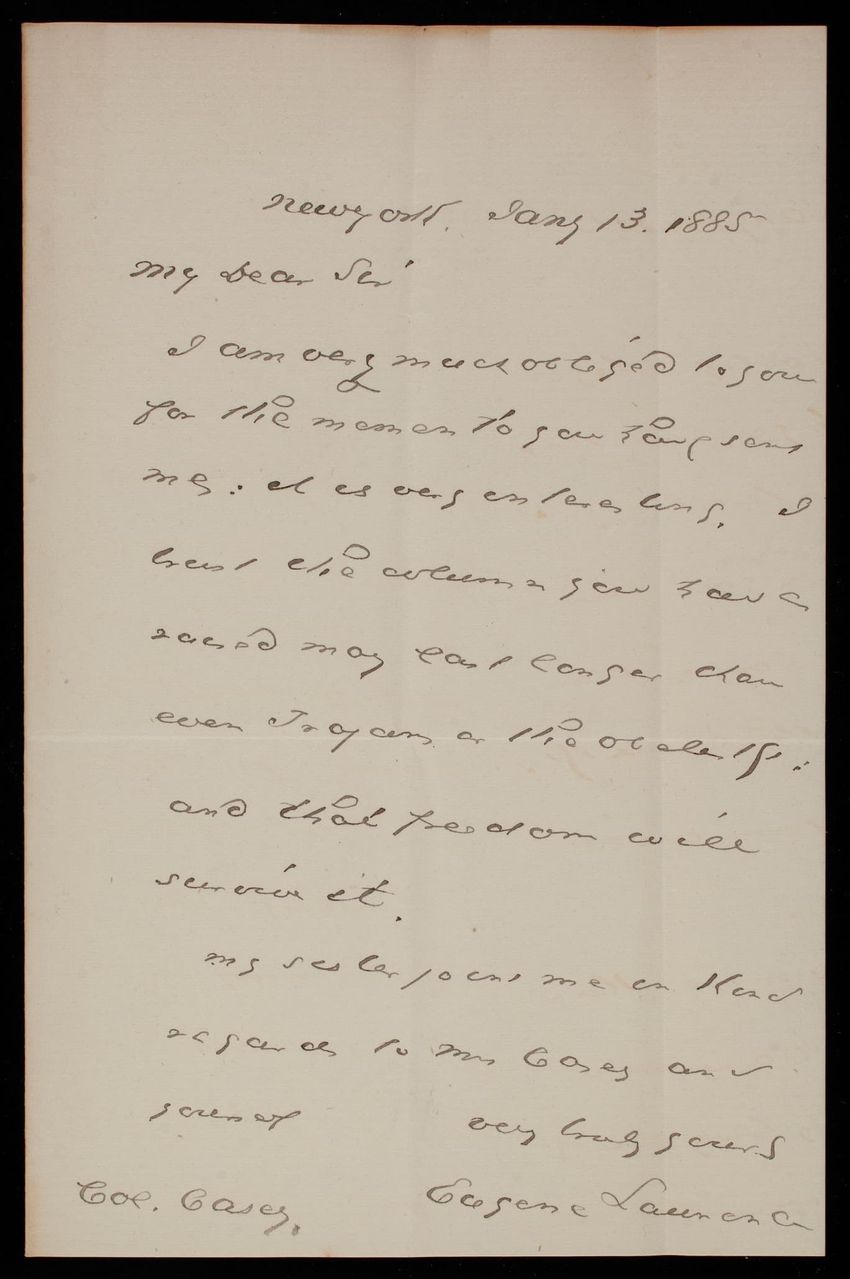 New York. Jany 13. 1885
My Dear Sir
I am very much obliged to you
for the memento you have sent
me: it is very interesting. I
trust the column you have
raised may last longer than
even Trajans or the obelisk:
and that freedom will
survive it.
My sister joins me in Kind
regards to Mrs Casey and
yourself very truly yours
Col. Casey. Eugene Lawrence